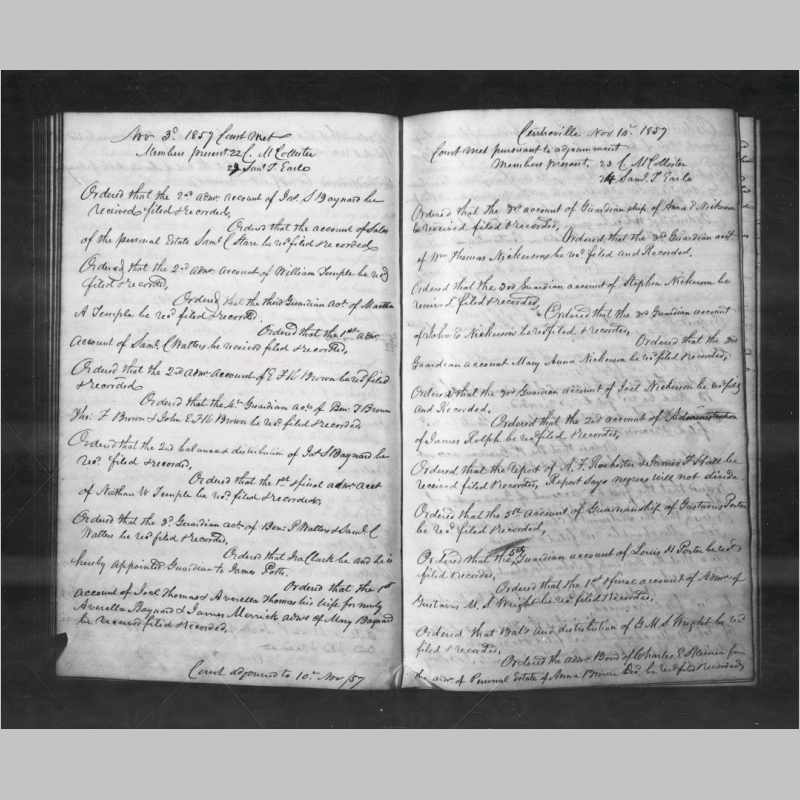 Nov 3d. 1857 Court Met
Members present. 22 C. McCollester
23 Saml. T Earle
Ordered that the 2nd admr account of Jas. S Baynard be
received filed & recorded,
Ordered that the account of Sales
of the personal Estate Saml. C Hare be recd filed & recorded
Ordered that the 2nd admr account of William Temple be recd
filed & recorded,
Ordered that the third Guardian act. of Martha
A Temple be recd. filed & recorded.
Ordered that the 1st admr.
account of Saml. C Watters be received filed & recorded,
Ordered that the 2nd admr account of E F K Brown be recd filed
& recorded
Ordered that the 4th Guardian acts of Ben: F Brown
Thos: F Brown & John E. F K Brown be recd. filed & recorded
Ordered that the 2nd balance & distribution of Jas. S Baynard be
recd. filed & recorded,
Ordered that the 1st & final admr acct
of Nathan W Temple be recd. filed & recorded.
Ordered that the 3d Guardian act. of Ben: P Watters & Saml. C
Watters be recd. filed & recorded,
Ordered that Ira Clark be and he is
hereby appointed Guardian to James Potts.
Ordered that the 1st
account of Joel Thomas & Averella Thomas his wife formerly
Averella Baynard & James Merrick admrs of Mary Baynard
be received filed & recorded,
Court adjourned to 10th. Nov /57
Centreville Nov 10th. 1857
Court met pursuant to adjournment
Members present, 23 C McCollester
24 Saml. T Earle
Ordered that the 3rd account of Guardianship of Anna D Nickerson
be received filed & recorded,
Ordered that the 3rd Guardian act.
of Wm Thomas Nickerson be recd filed and Recorded.
Ordered that the 3rd Guardian account of Stephen Nickerson be
received filed & recorded,
Ordered that the 3rd Guardian account
of John E Nickerson be recd filed & recorded,
Ordered that the 3rd
Guardian account Mary Anna Nickerson be recd filed & recorded,
Ordered that the 3rd Guardian account of Joel Nickerson be recd filed
and Recorded.
Ordered that the 2nd account of Administration
of James Ralph be recd filed & Recorded,
Ordered that the report of A. F. Rochester & James F Hall be
received filed & recorded, Report Says negroes will not divide
Ordered that the 5th account of Guardianship of Gustavus Porter
be recd filed & Recorded,
Ordered that the 5th Guardian account of Louis H Porter be recd
filed & recorded,
Ordered that the 1st & final account of Admr. of
Gustavus M. S. Wright be recd filed & Recorded.
Ordered that Bal: and distribution of G. M S. Wright be recd
filed & recorded,
Ordered the admr Bond of Charles E Skinner for
the admr. of Personal Estate of Anna Brown Decd. be recd filed & recorded